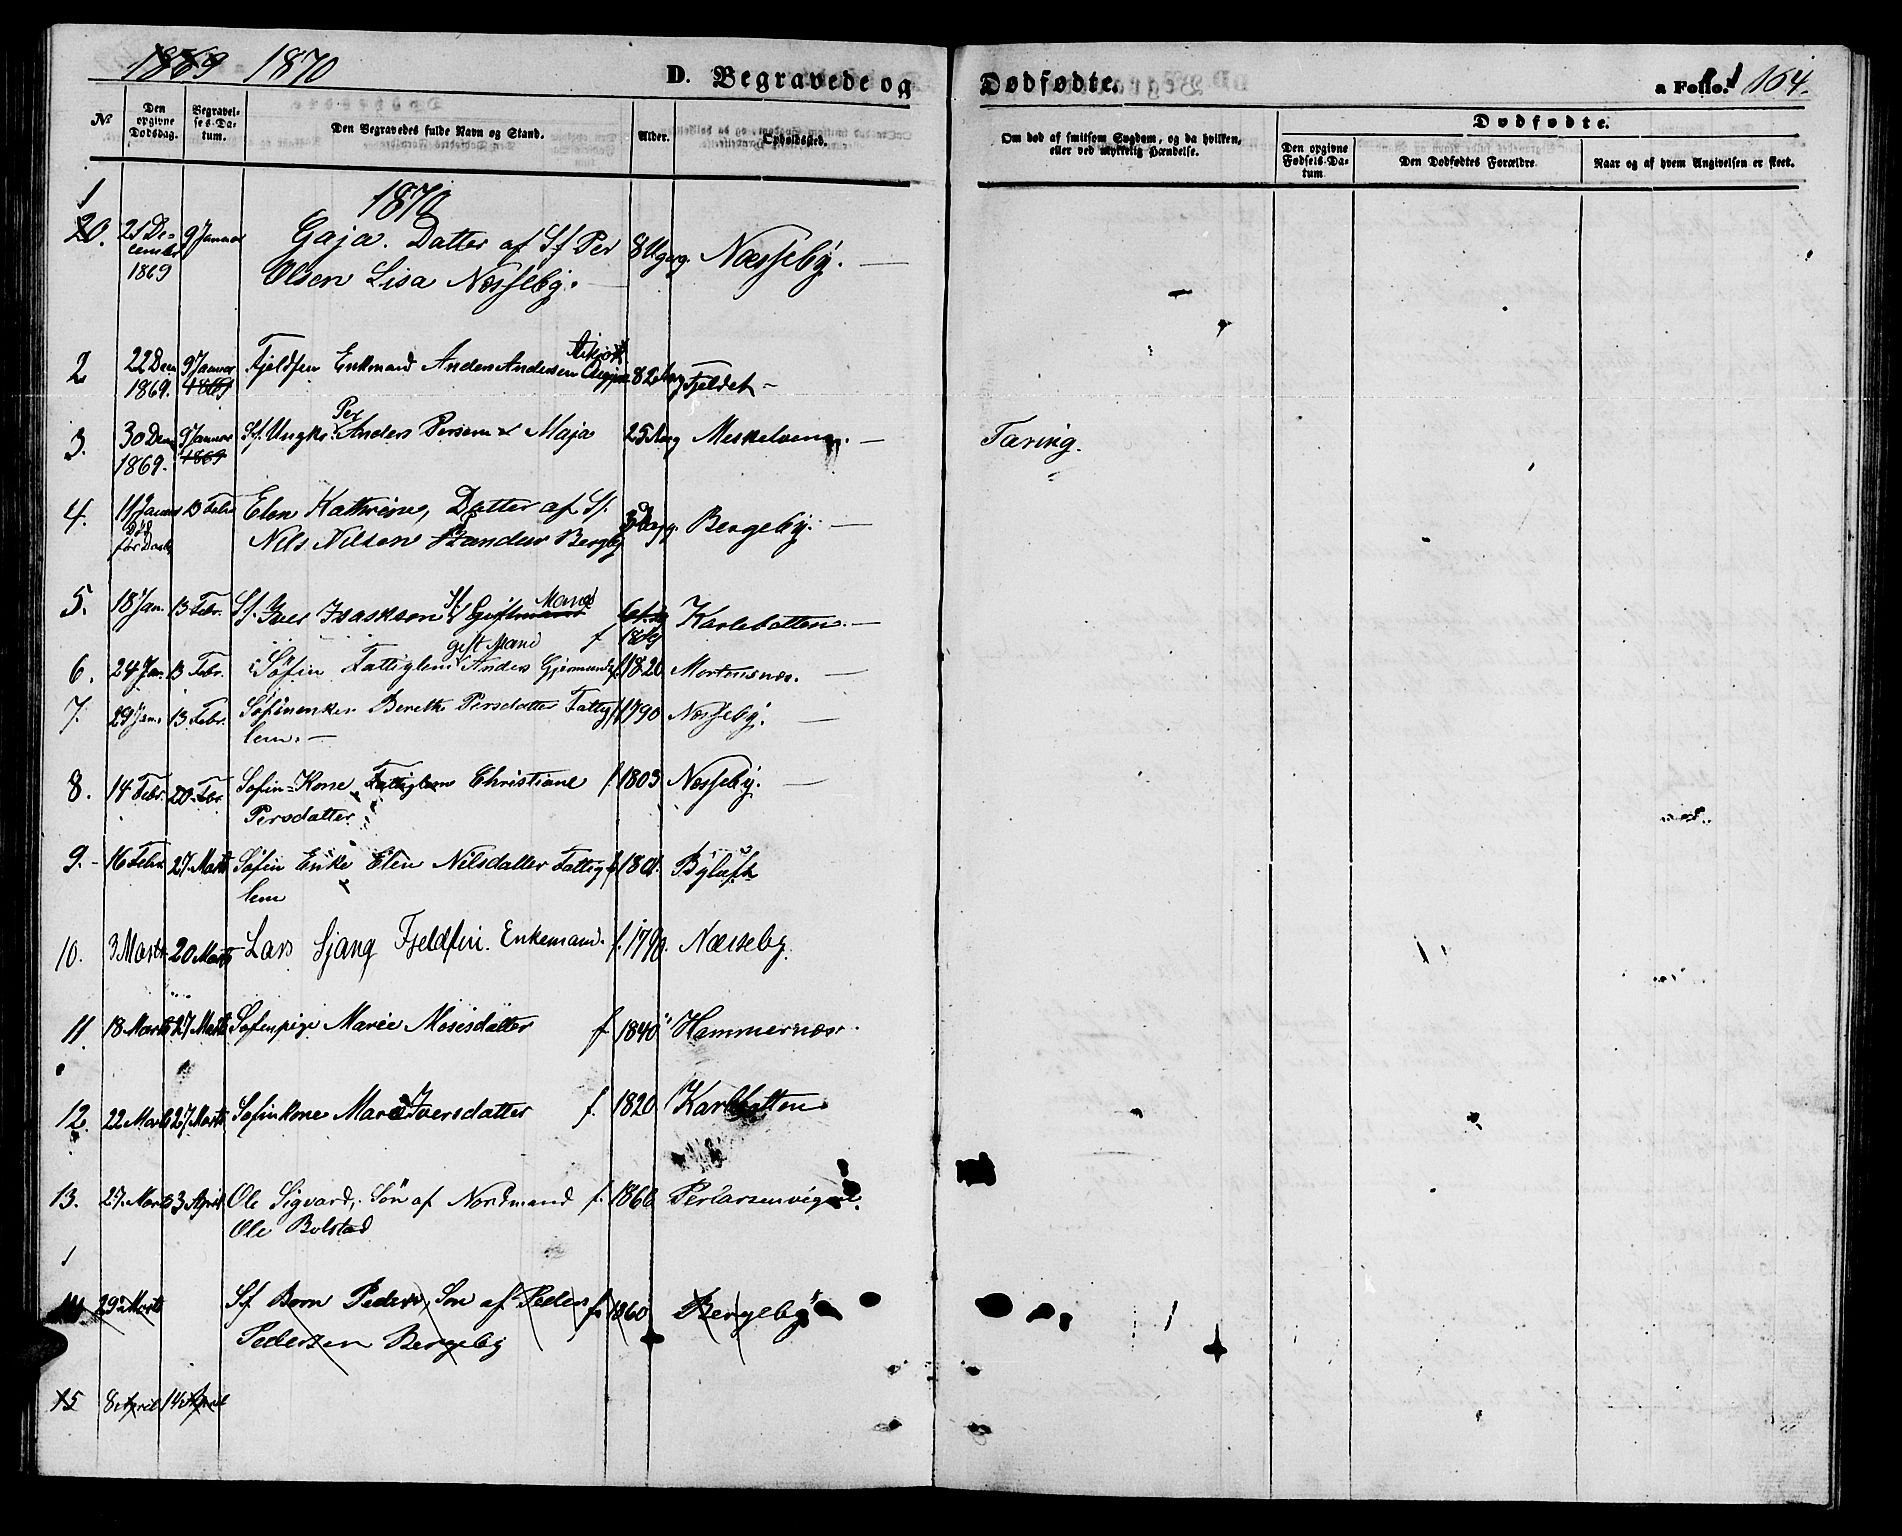 1869 1870
D. Begravede og Dødfødte.
a Folio. 164.
No
Den opgivne Dødsdag.
Begravelses-Datum.
Den Begravedes fulde Navn og Stand.
Alder.
Opholdssted.
Om død af smitsom Sygdom, og da hvilken, eller ved ulykkelig Hændelse.
Dødfødte.
Den opgivne Fødsels-Datum
Den Dødfødtes Forældre
Naar og af hvem Angivelsen er skeet.
1870
1
20. 21 De- 9 Januar Gaja. Datter af Sf Per 8 Uger. Næsseby. —
cember
1869 Olsen Lisa Næsseby.
2 22 Dem 9 Januar Fjeldfin Enkemand Anders Andersen 82 Aar Fjeldet —
1869. 1869
3. 30 Dem 9 Januar Sf. Ungk. Per Anders Persen Maja 25 Aar Meskelven. — Tæring.
1869. 1869
4. 11 Januar 13 Febr Elen Kathrine, Datter af Sf. 3 Dage. Bergeby. —
Død før Daab Nils Nilsen Bergeby
5. 18 Jan. 13 Febr. Sf. Iver Isaksen Sf Giftmand Karlebotten. —
gift Mand f
6. 24 Jan. 13 Febr. Søfin Fattiglem Anders Gjermunds f. 1820 Mortensnæs. —
7. 29 Jan. 13 Febr. Søfinenken Berethe Persdatter Fattig f. 1790 Næsseby. —
lem. —
8. 14 Febr. 20 Febr Søfin-Kone Fattiglem Christiane f. 1803 Næsseby. —
Persdatter
9. - 16 Febr. 27. Marts Søfin Enke Elen Nilsdatter Fattig f. 1801. Byluft
lem
10. 3 Marts 20 Marts Lars Sjang Fjeldfin. Enkemand. f. 1790. Næsseby.
11. 18 Marts 27 Marts Søfinpige Marie Mosesdatter f 1840 Hammernæs.
12. 22 Marts 27 Marts Søfinkone Marie Iversdatter f. 1820 Karlbotten
13. 27. Marts 3 April Ole Sigvard, Søn af Nordmand f. 1866 Perlarsenvigen.
Ole Bolstad
1
14 29 Marts Sf Barn Peder, Søn af Peder f. 1860 Bergeby
Pedersen Bergeby
15 8 April 14 April